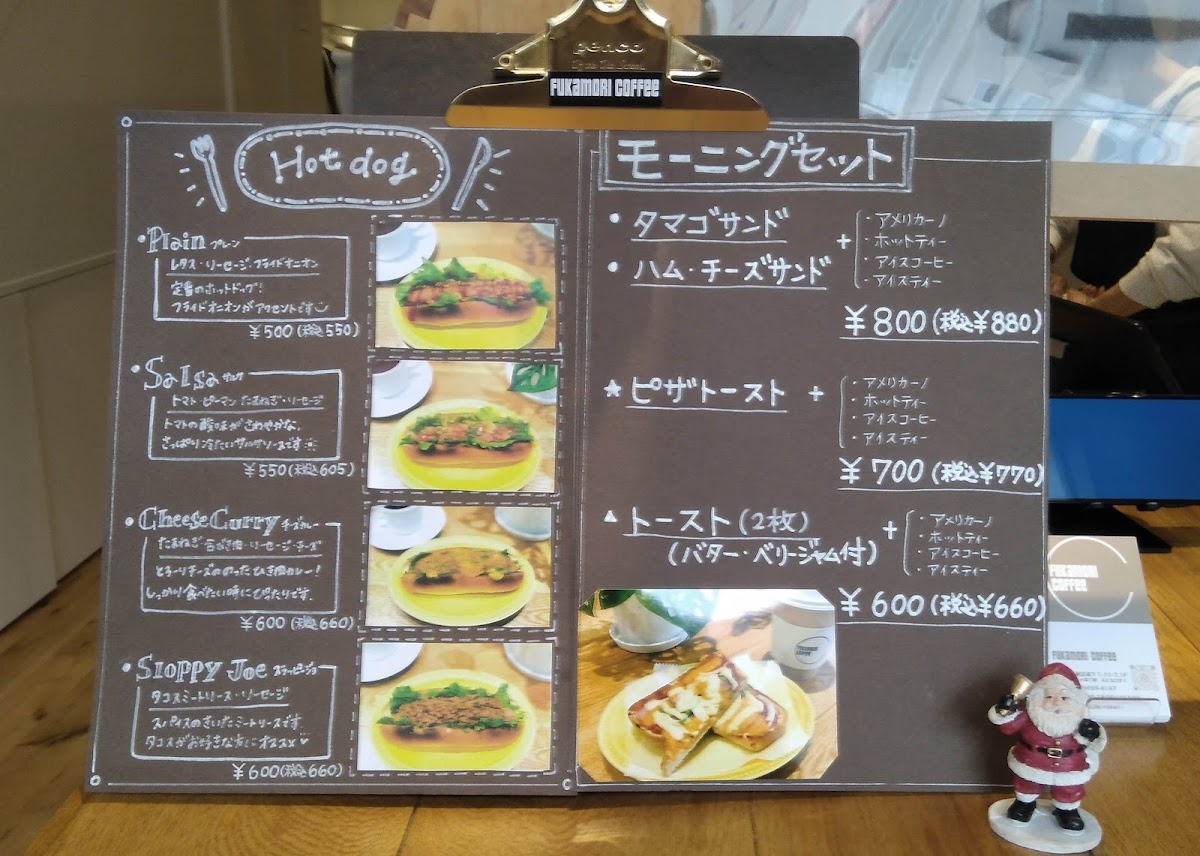 penco
FUKAMORI COFFEE
Hot dog
• Plain プレーン
レタス・ソーセージ・フライドオニオン
定番のホットドッグ!
フライドオニオンがアクセントです
¥500(税込550)
• Salsa サルサ
トマト・ピーマン たまねぎ・ソーセージ
トマトの酸味がさわやかな、
さっぱり冷たいサルサソースです
¥550(税込605)
• Cheese Curry チーズカレー
たまねぎ・合びき肉・ソーセージ・チーズ
とろ〜りチーズののったひき肉カレー!
しっかり食べたい時にぴったりです。
¥600(税込660)
• Sloppy Joe スラッピージョー
タコスミートソース・ソーセージ
スパイスのきいたミートソースです。
タコスがお好きな方にオススメ♡
¥600(税込660)
モーニングセット
• タマゴサンド
• ハム・チーズサンド
+
・アメリカーノ
・ホットティー
・アイスコーヒー
・アイスティー
¥800(税込¥880)
★ ピザトースト +
・アメリカーノ
・ホットティー
・アイスコーヒー
・アイスティー
¥700(税込¥770)
▲ トースト(2枚)
(バター・ベリージャム付)
+
・アメリカーノ
・ホットティー
・アイスコーヒー
・アイスティー
¥600(税込¥660)
FUKAMORI
COFFEE
FUKAMORI COFFEE